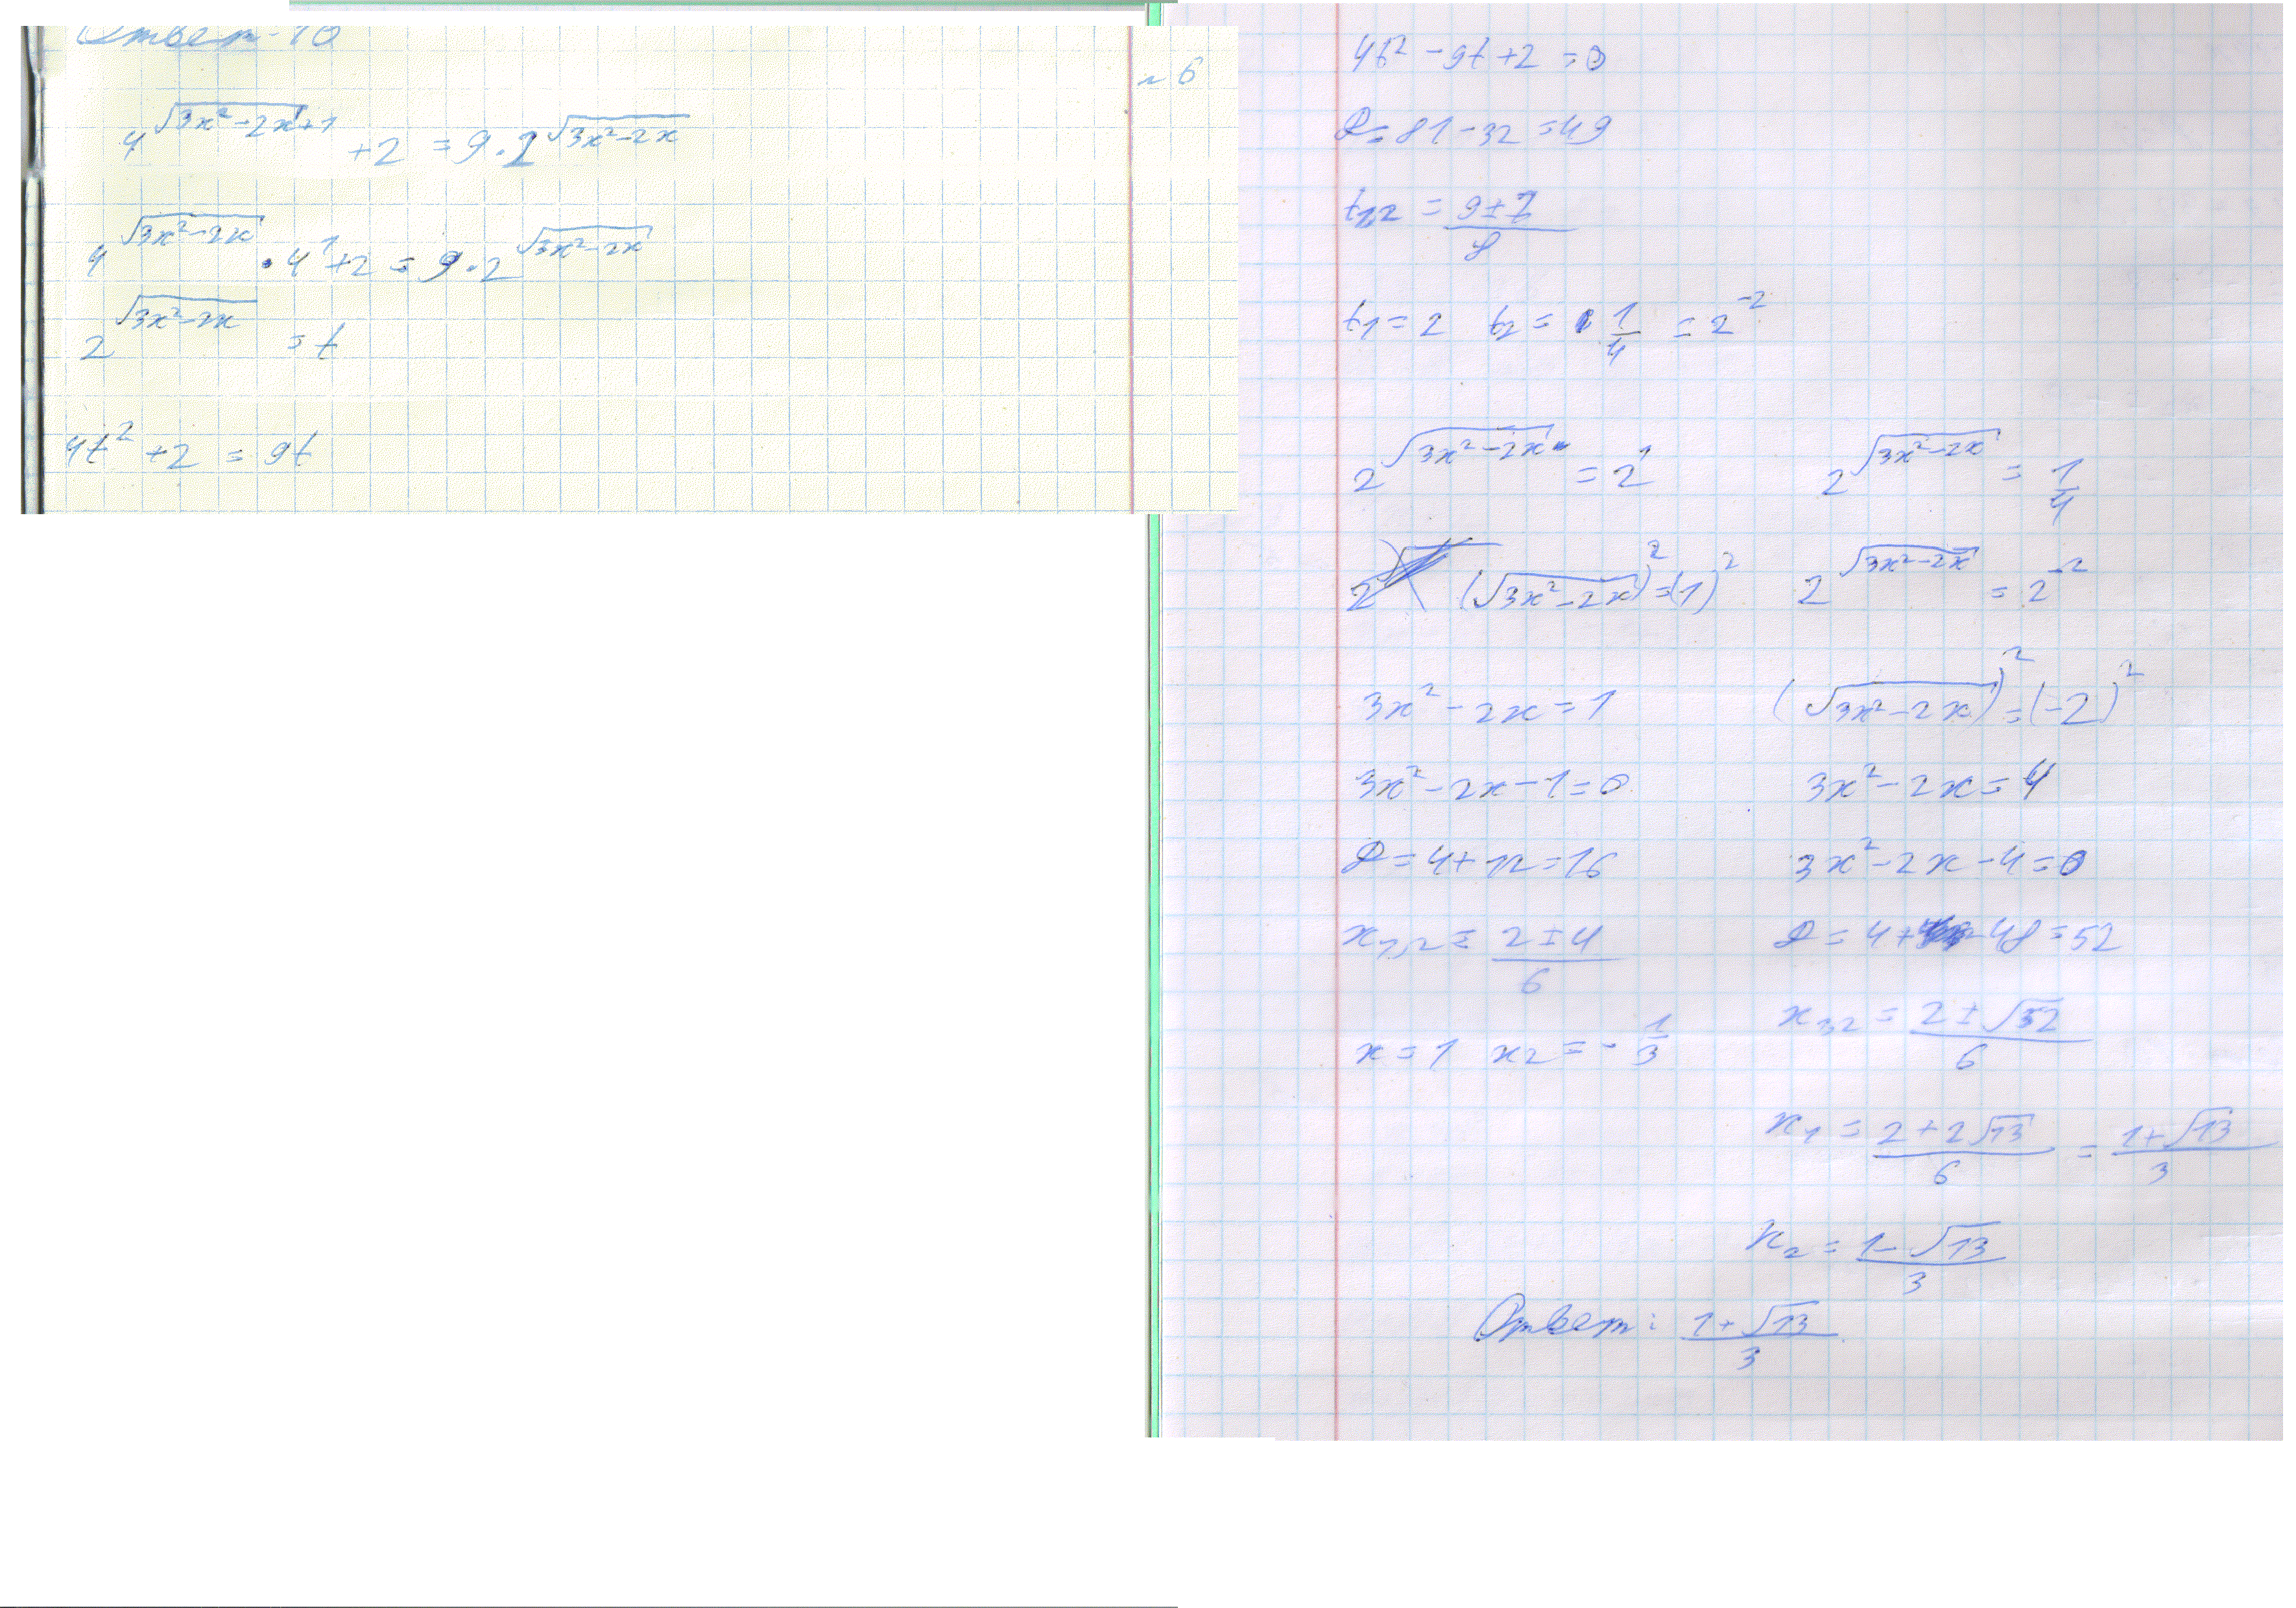 Ответ: 10
№6
4^{√(3x²-2x)+1} + 2 = 9·2^{√(3x²-2x)}
4^{√(3x²-2x)} · 4¹ + 2 = 9·2^{√(3x²-2x)}
2^{√(3x²-2x)} = t
4t² + 2 = 9t
4t² - 9t + 2 = 0
D = 81 - 32 = 49
t₁,₂ = (9±7)/8
t₁ = 2 t₂ = 1/4 = 2⁻²
2^{√(3x²-2x)} = 2¹
(√(3x²-2x))² = (1)²
3x² - 2x = 1
3x² - 2x - 1 = 0
D = 4 + 12 = 16
x₁,₂ = (2±4)/6
x = 1 x₂ = -1/3
2^{√(3x²-2x)} = 1/4
2^{√(3x²-2x)} = 2⁻²
(√(3x²-2x))² = (-2)²
3x² - 2x = 4
3x² - 2x - 4 = 0
D = 4 + 48 = 52
x₁,₂ = (2±√52)/6
x₁ = (2+2√13)/6 = (1+√13)/3
x₂ = (1-√13)/3
Ответ: (1+√13)/3